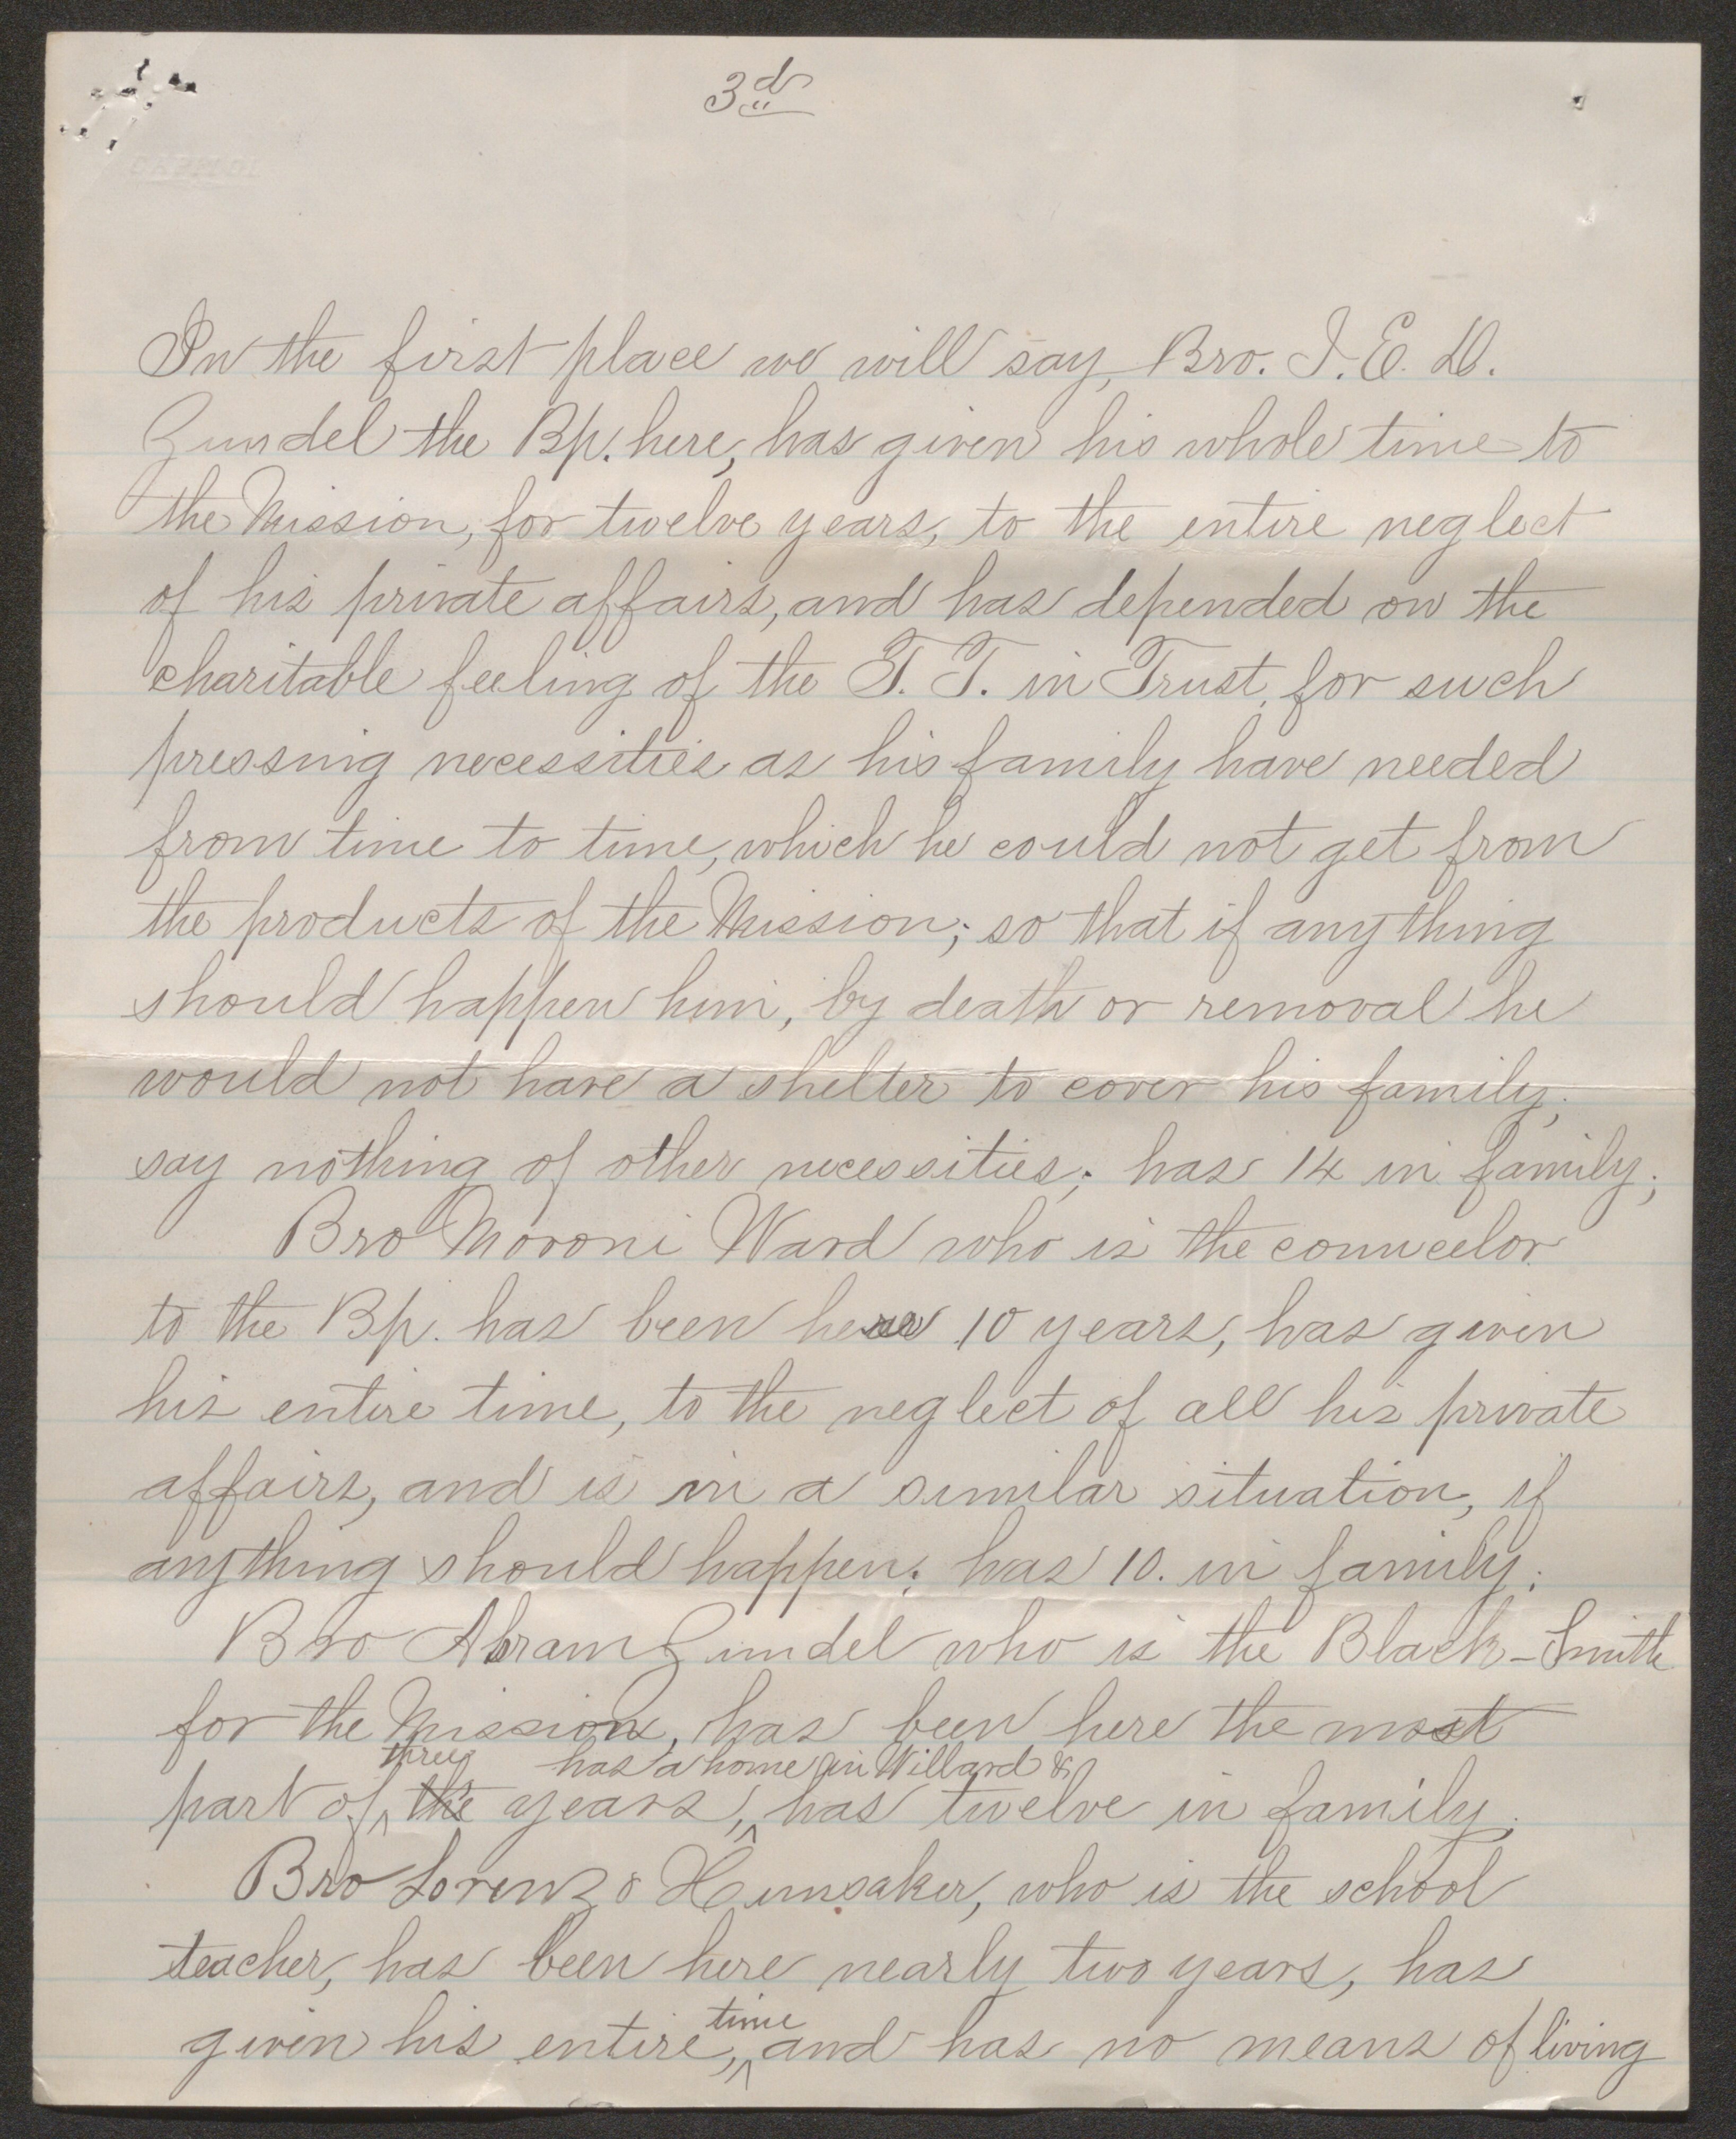 3d
In the first place we will say, Bro. I. E. D.
Zundel the Bp. here, has given his whole time to
the Mission, for twelve years, to the entire neglect
of his private affairs, and has depended on the
charitable feeling of the T. T. in Trust, for such
pressing necessities as his family have needed
from time to time, which he could not get from
the products of the Mission; so that if anything
should happen him, by death or removal he
would not have a shelter to cover his family,
say nothing of other necessities; has 14 in family;
Bro Moroni Ward who is the councelor
to the Bp. has been here 10 years, has given
his entire time, to the neglect of all his private
affairs, and is in a similar situation, if
anything should happen; has 10. in family;
Bro Abram Zundel who is the Black-Smith
for the Mission, has been here the most
three has a home in Willard &
part of the years, has twelve in family;
Bro Lorenzo Hunsaker, who is the school
teacher, has been here nearly two years, has
time
given his entire, and has no means of living